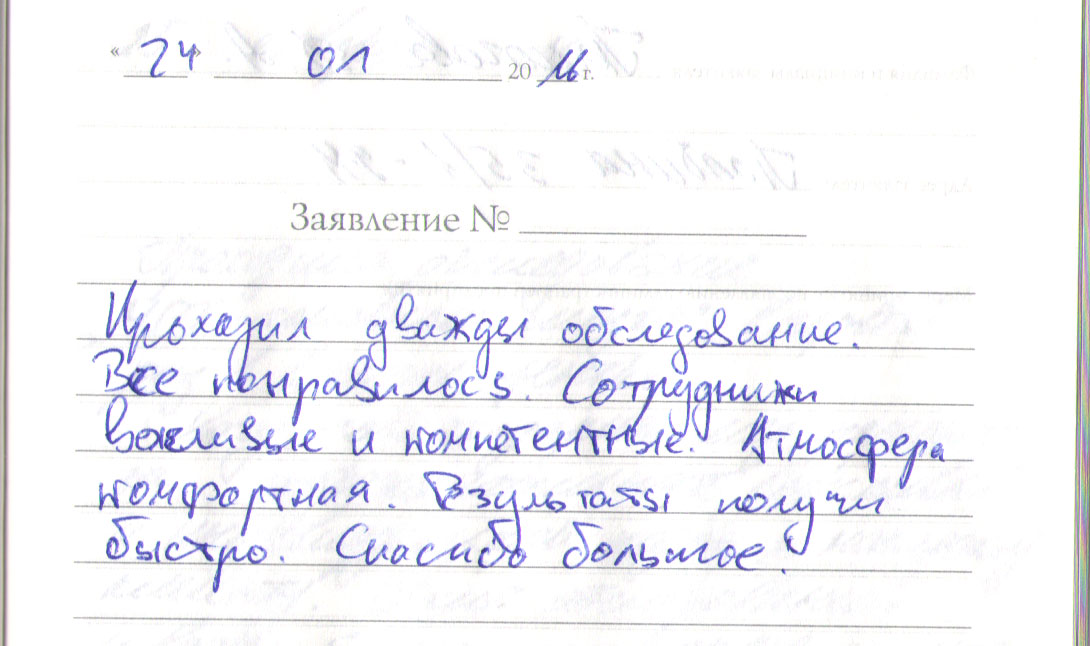 «24» 01 2016 г.
Заявление №
Проходил дважды обследование.
Все понравилось. Сотрудники
вежливые и компетентные. Атмосфера
комфортная. Рзультаты получил
быстро. Спасибо большое!